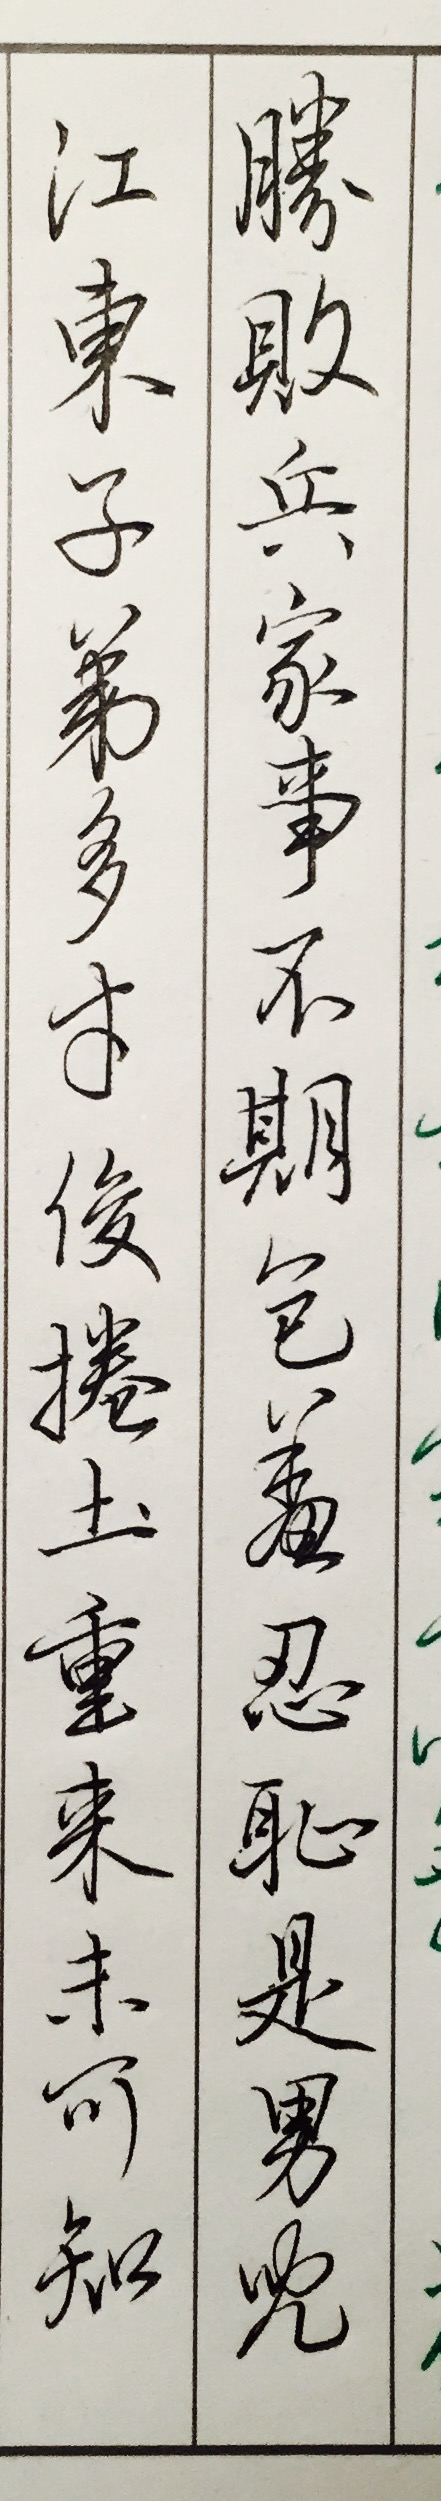 勝敗兵家事不期包羞忍恥是男兒
江東子弟多才俊捲土重来未可知